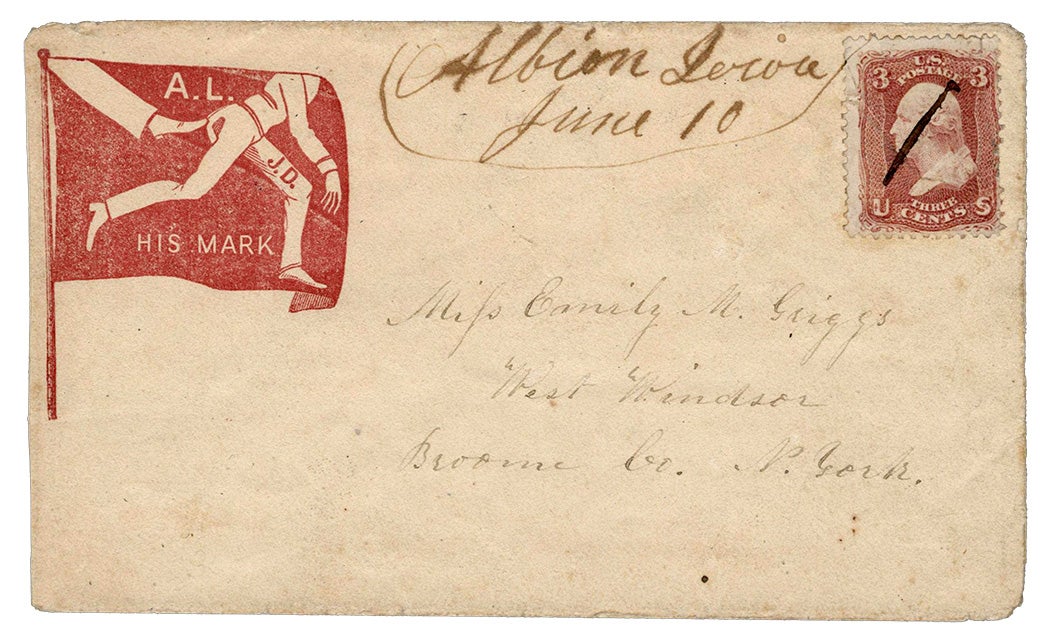 A.L.
J.D.
HIS MARK
Albion Iowa
June 10
3 U.S. 3
POSTAGE
U THREE S
CENTS
Miſs Emily M. Griggs
West Windsor
Broome Co. N. York.